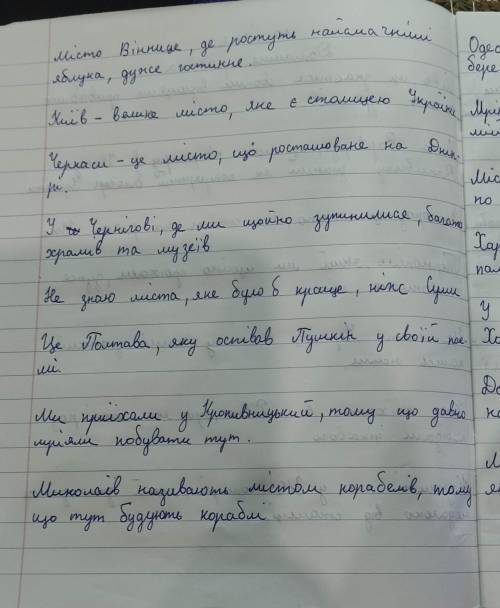 Місто Вінниця, де ростуть найсмачніші
яблука, дуже гостинне.
Київ – велике місто, яке є столицею України
Черкаси – це місто, що розташоване на Дніп-
рі.
У Чернігові, де ми щойно зупинилися, багато
храмів та музеїв
Не знаю міста, яке було б краще, ніж Суми
Це Полтава, яку оспівав Пушкін у своїй пое-
мі.
Ми приїхали у Кропивницький, тому що давно
мріяли побувати тут.
Миколаїв називають містом корабелів, тому
що тут будують кораблі
Одес
бере
мій
Міс
по
Хар
пам
У
Хо
До
на
М
як